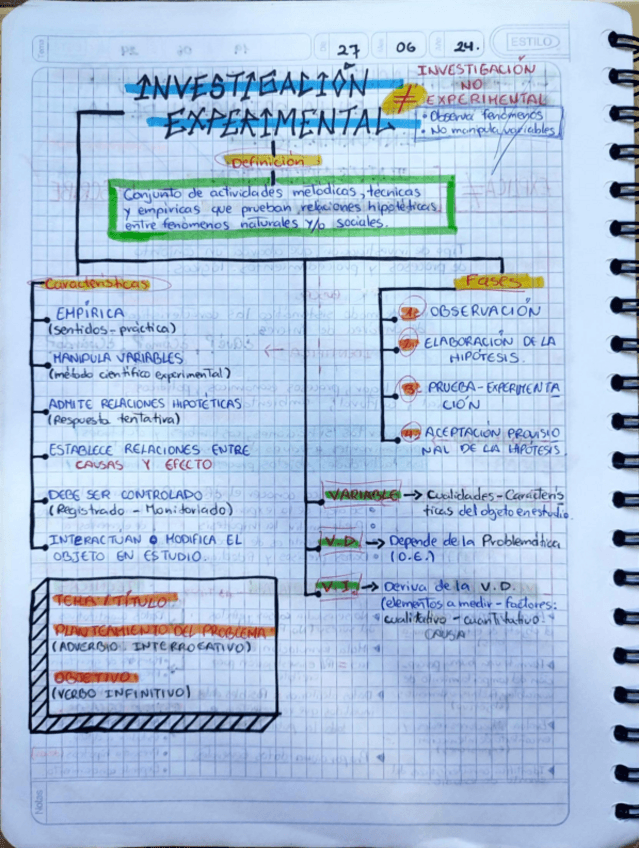 27 06 24.
ESTILO
INVESTIGACIÓN
EXPERIMENTAL
≠
INVESTIGACIÓN
NO
EXPERIMENTAL
• Observa fenómenos
• No manipula variables
Definición
Conjunto de actividades metodicas, tecnicas
y empiricas que prueban relaciones hipotéticas
entre fenómenos naturales y/o sociales.
Caracteristicas
EMPÍRICA
(sentidos-práctica)
MANIPULA VARIABLES
(método científico experimental)
ADMITE RELACIONES HIPOTÉTICAS
(Respuesta tentativa)
ESTABLECE RELACIONES ENTRE
CAUSAS Y EFECTO
DEBE SER CONTROLADO
(Registrado - Monitoriado)
INTERACTUAN O MODIFICA EL
OBJETO EN ESTUDIO.
Fases
1. OBSERVACIÓN
2. ELABORACIÓN DE LA
HIPÓTESIS.
3. PRUEBA-EXPERIMENTA
CIÓN
4. ACEPTACIÓN PROVISIO
NAL DE LA HIPÓTESIS
VARIABLE → Cualidades-Caracterís
ticas del objeto en estudio
V.D. → Depende de la Problemática
(O.E.)
V.I. → Deriva de la V.D.
(elementos a medir - factores:
cualitativo - cuantitativo
CAUSA
TEMA / TÍTULO
PLANTEAMIENTO DEL PROBLEMA
(ADVERBIO INTERROGATIVO)
OBJETIVO
(VERBO INFINITIVO)
Notas